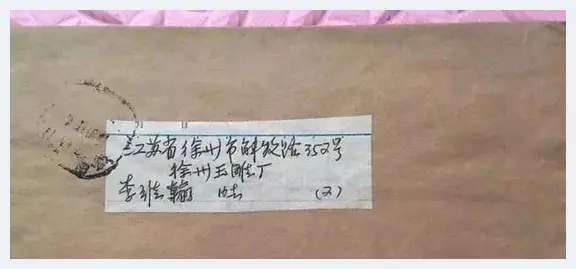 江苏省徐州市解放路352号
徐州玉雕厂
李 收